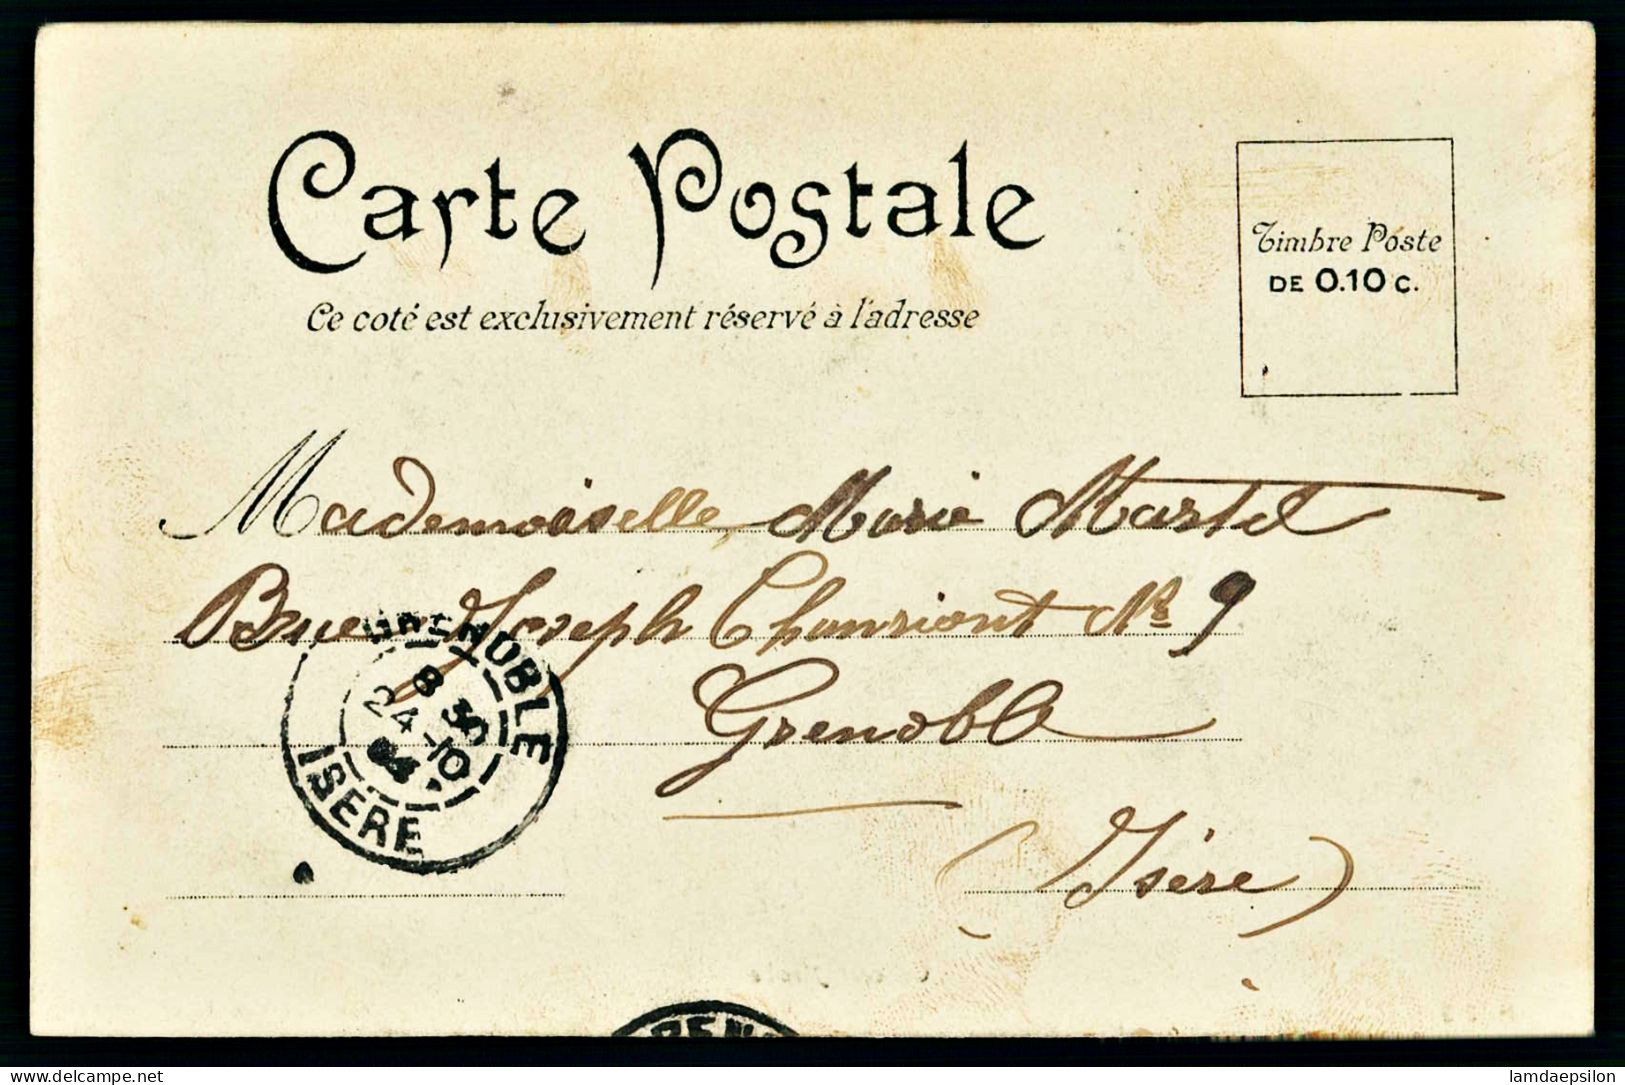 Carte Postale
Ce coté est exclusivement réservé à l'adresse
Timbre Poste
DE 0.10 c.
Mademoiselle Marie Martel
Rue Joseph Chanriont No 9
Grenoble
(Isère)
GRENOBLE
8 30
24 -10
04
ISERE
GREN
delcampe.net
lamdaepsilon